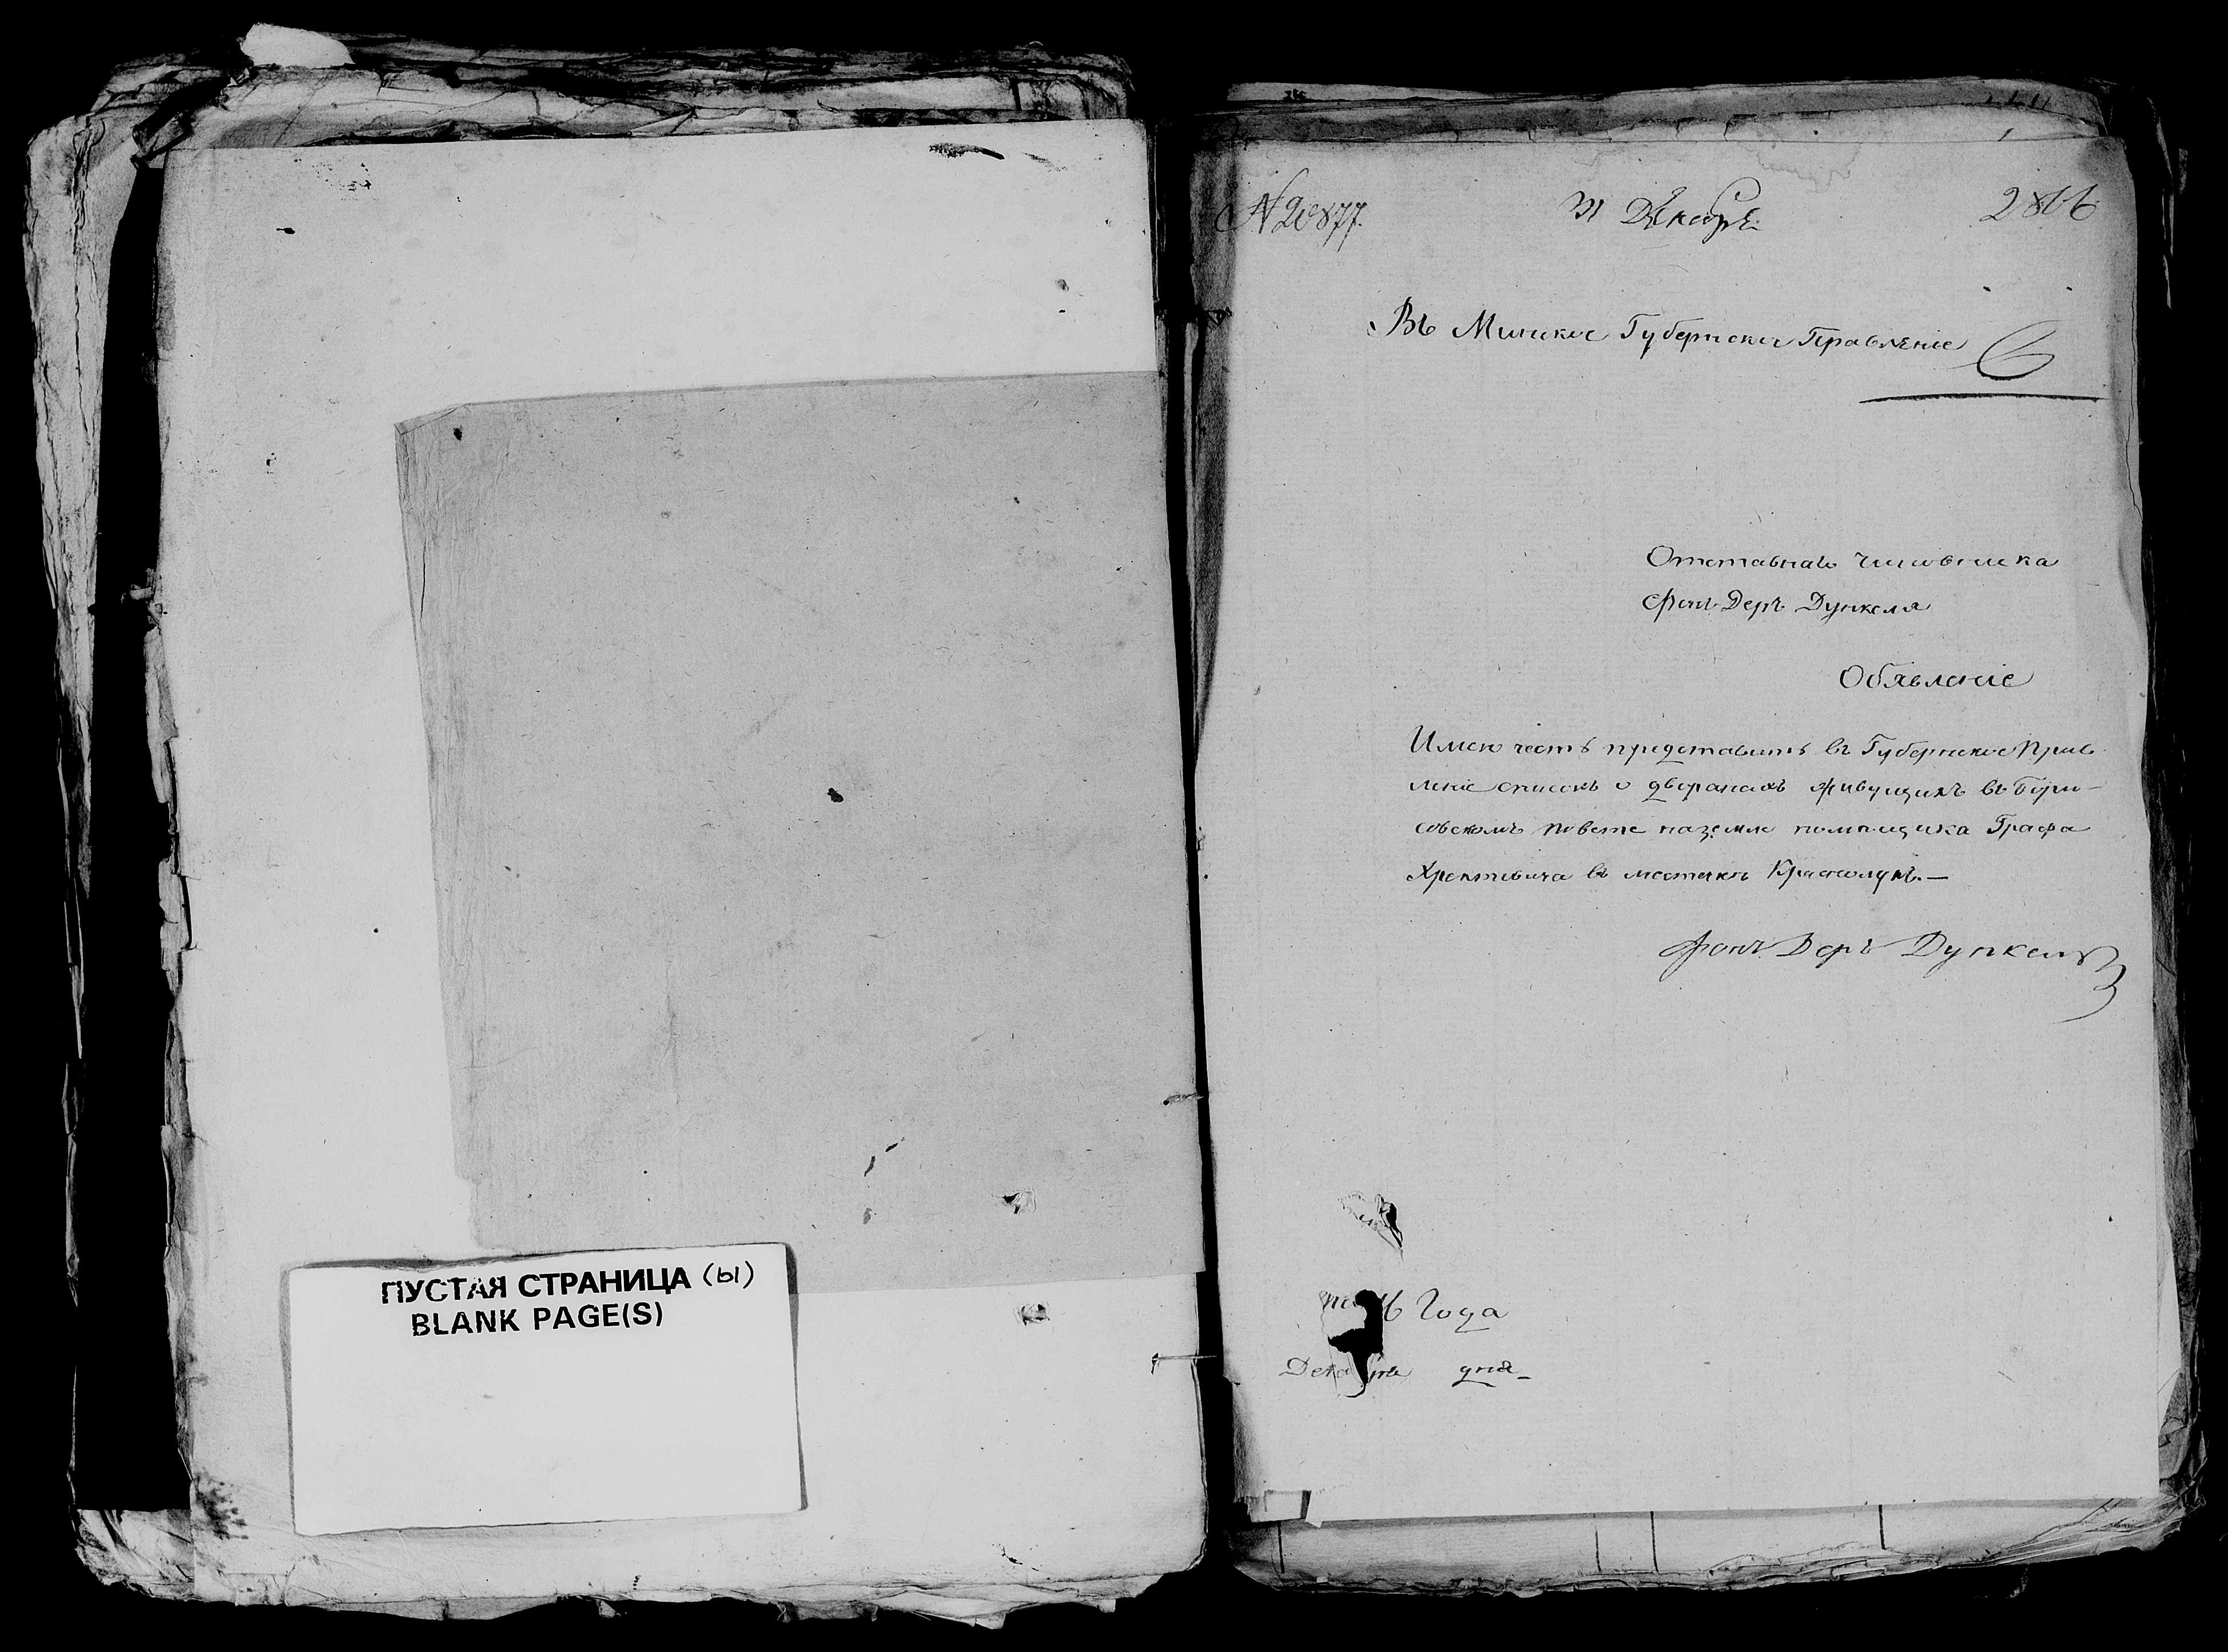 ПУСТАЯ СТРАНИЦА (ы)
BLANK PAGE(S)
№ 20877.
31 Декабря
Въ Минское Губернское Правленiе
Отставнаго чиновника
Фонъ Деръ Дункеля
Обявленiе
Имею честь представить въ Губернское Прав
ленiе список о дворянахъ живущихъ въ Бори-
совскомъ повете на земле помещика Графа
Хрептовича въ местечке Краснолукъ.—
Фонъ Деръ Дункель
Года
Дека дня